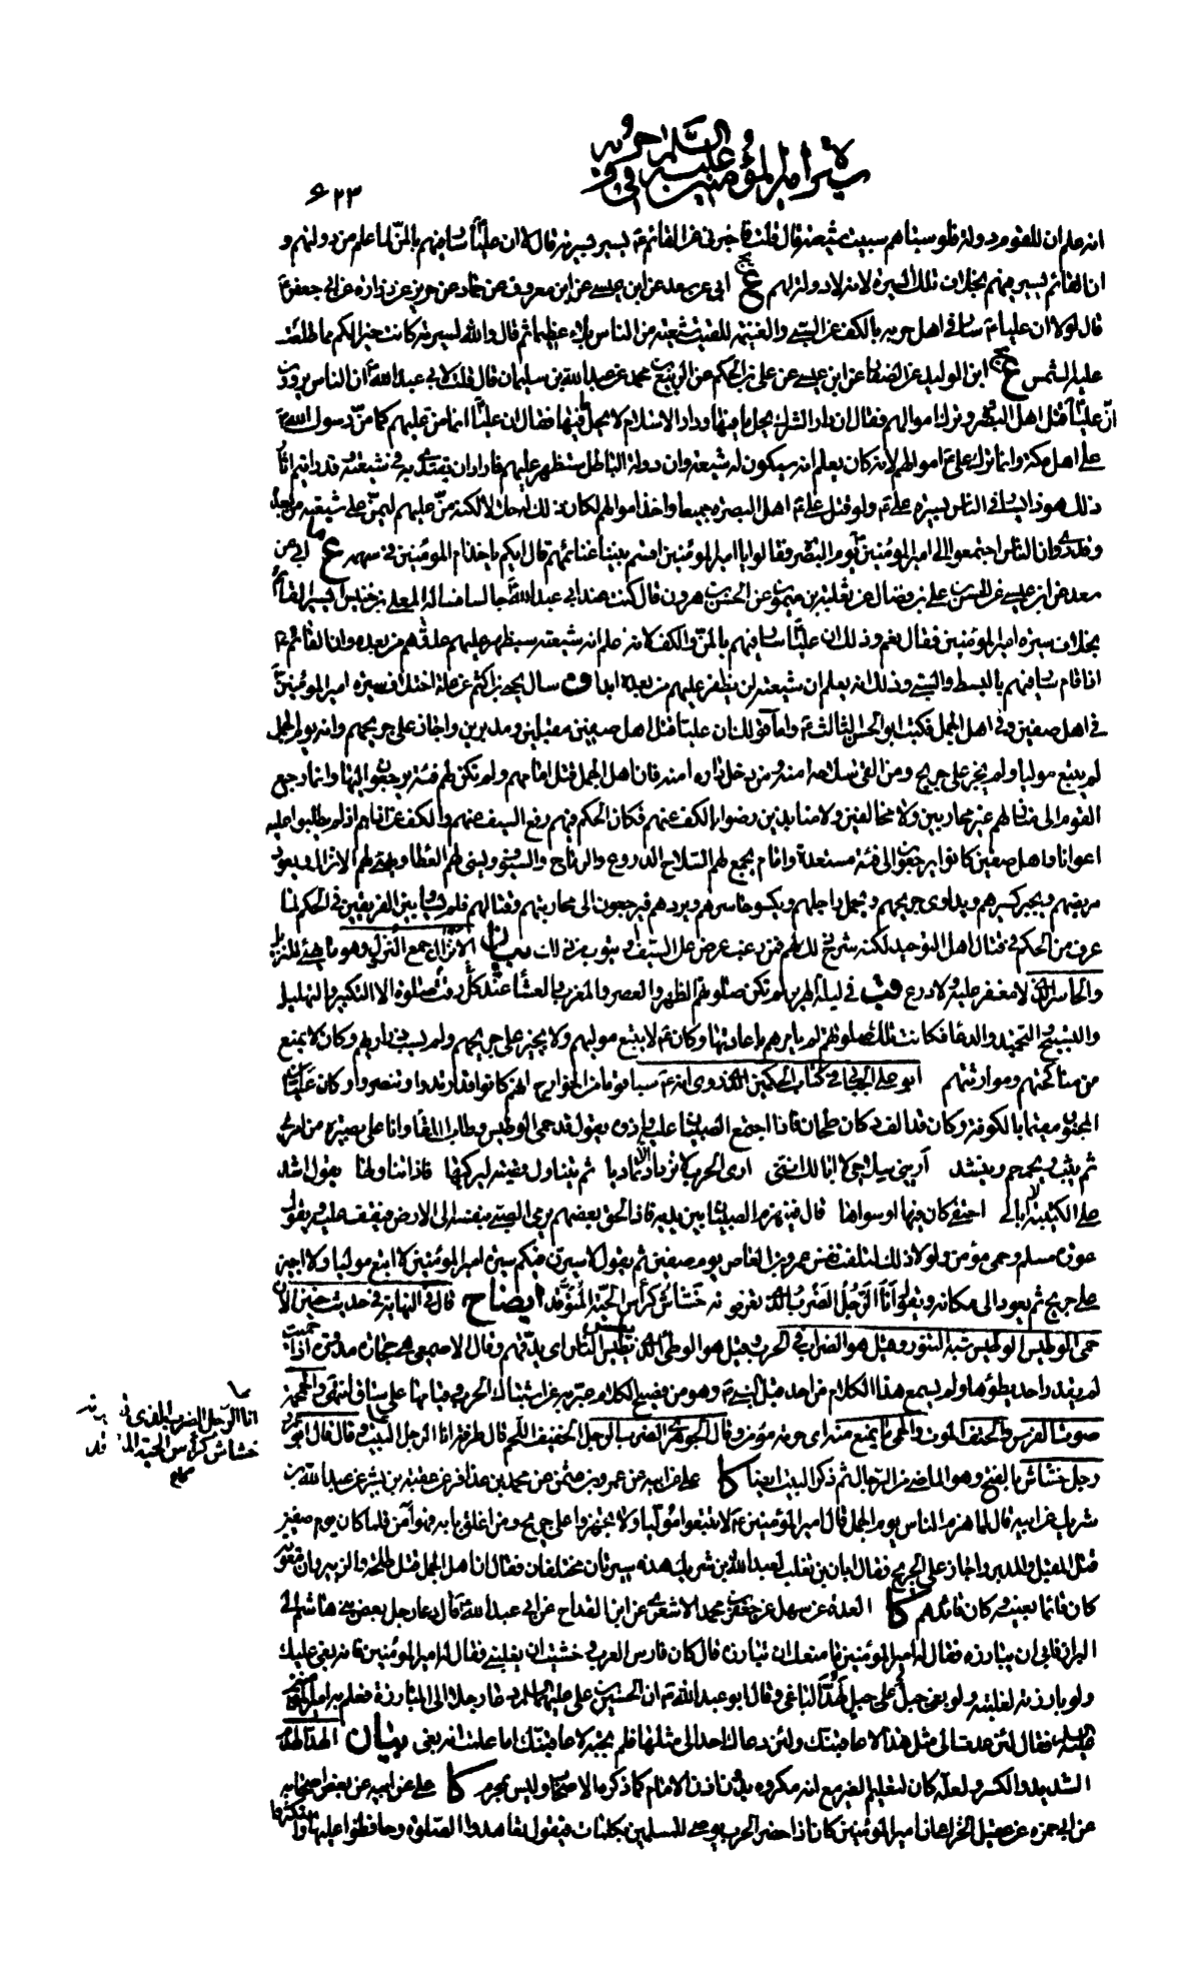 سيرة امير المؤمنين عليه السلام في حروبه
۶۲۳
انه علم ان للقوم دولة فلو سباهم سبيت شيعته قال قلت فاخبرني عن القائم ع يسير بسيرته قال لا ان عليا ع سار فيهم بالمن لما علم من دولتهم و
ان القائم يسير فيهم بخلاف تلك السيرة لانه لا دولة لهم ع ابي عن سعد عن ابن عيسى عن ابن معروف عن حماد عن حريز عن زرارة عن ابي جعفر ع
قال لولا ان عليا ع سار في اهل حربه بالكف عن السبي والغنيمة للقيت شيعته من الناس بلاء عظيما ثم قال والله لسيرته كانت خيرا لكم مما طلعت
عليه الشمس ع ابن الوليد عن الصفار عن ابن عيسى عن علي بن الحكم عن الربيع بن محمد عن عبد الله بن سليمان قال قلت لابي عبد الله ع ان الناس يروون
ان عليا ع قتل اهل البصرة وترك اموالهم فقال ان دار الشرك يحل ما فيها ودار الاسلام لا يحل ما فيها فقال ان عليا انما من عليهم كما من رسول الله ص
على اهل مكة وانما ترك علي ع اموالهم لانه كان يعلم انه سيكون له شيعة وان دولة الباطل ستظهر عليهم فاراد ان يقتدى به في شيعته وقد رايتم اثار
ذلك هو ذا يسار في الناس بسيرة علي ع ولو قتل علي ع اهل البصرة جميعا واخذ اموالهم لكان ذلك له حلالا لكنه من عليهم ليمن على شيعته من بعده
وقد روي ان الناس اجتمعوا الى امير المؤمنين ع يوم البصرة فقالوا يا امير المؤمنين اقسم بيننا غنائمهم قال ايكم ياخذ ام المؤمنين في سهمه ع ابي عن
سعد عن ابن عيسى عن الحسن بن علي بن فضال عن ثعلبة بن ميمون عن الحسن بن هرون قال كنت عند ابي عبد الله ع جالسا فساله المعلى بن خنيس ايسير القائم
بخلاف سيرة امير المؤمنين فقال نعم وذلك ان عليا ع سار فيهم بالمن والكف لانه علم ان شيعته سيظهر عليهم عدوهم من بعده وان القائم ع
اذا قام سار فيهم بالبسط والسبي وذلك انه يعلم ان شيعته لن يظهر عليهم من بعده ابدا ف سال يحيى بن اكثم عن علة اختلاف سيرة امير المؤمنين ع
في اهل صفين وفي اهل الجمل فكتب ابو الحسن الثالث ع واما قولك ان عليا قتل اهل صفين مقبلين ومدبرين واجاز على جريحهم وانه يوم الجمل
لم يتبع موليا ولم يجز على جريح ومن القى سلاحه امنه ومن دخل داره امنه فان اهل الجمل قتل امامهم ولم تكن لهم فئة يرجعون اليها وانما رجع
القوم الى منازلهم غير محاربين ولا مخالفين ولا منابذين رضوا بالكف عنهم فكان الحكم فيهم رفع السيف عنهم والكف عن اذاهم اذ لم يطلبوا عليه
اعوانا واهل صفين كانوا يرجعون الى فئة مستعدة وامام يجمع لهم السلاح الدروع والرماح والسيوف ويسني لهم العطاء ويهيئ لهم الانزال ويعود
مريضهم ويجبر كسيرهم ويداوي جريحهم ويحمل راجلهم ويكسو حاسرهم ويردهم فيرجعون الى محاربتهم وقتالهم فلم يساو بين الفريقين في الحكم لما
عرف من الحكم في قتال اهل التوحيد لكنه شرح ذلك لهم فمن رغب عرض على السيف او يتوب من ذلك بيان الانزال جمع النزل وهو ما هيئ للنزيل
والحاسر الذي لا مغفر عليه ولا درع قب في ليلة الهرير لم تكن صلوتهم الظهر والعصر والمغرب والعشاء عند كل وقت صلوة الا التكبير والتهليل
والتسبيح والتحميد والدعاء فكانت تلك صلوتهم لم يامرهم باعادتها وكان ع لا يتبع موليهم ولا يجيز على جريحهم ولم يسب ذراريهم وكان لا يمنع
من مناكحتهم وموارثتهم ابو علي الجبائي في كتاب الحكمين الذي روى انه ع سبا قوما من الخوارج انهم كانوا قد ارتدوا وتنصروا وكان عليان
المجنون مقيما بالكوفة وكان قد الف دكان طحان فاذا اجتمع الصبيان عليه واذوه يقول قد حمي الوطيس وطاب اللقاء وانا على بصيرة من امري
ثم يثب ويحمحم وينشد اريني سلاحي لا ابا لك انني ارى الحرب لا تزداد الا تماديا ثم يتناول قصبته ليركبها فاذا تناولها يقول اشد
على الكتيبة لا ابالي احتفي كان فيها او سواها قال فينهزم الصبيان بين يديه فاذا لحق بعضهم يرمي الصبي بنفسه الى الارض فيقف عليه ويقول
عورة مسلم وحمى مؤمن ولولا ذلك لتلفت نفس عمرو بن العاص يوم صفين ثم يقول لاسيرن فيكم سيرة امير المؤمنين لا اتبع موليا ولا اجيز
على جريح ثم يعود الى مكانه ويقول انا الرجل الضرب الذي تعرفونه خشاش كراس الحية المتوقد ايضاح قال في النهاية في حديث حنين الان
حمي الوطيس الوطيس شبه التنور وقيل هو الضراب في الحرب وقيل هو الوطئ الذي يطس الناس اي يدقهم وقال الاصمعي هو حجارة مدورة اذا حميت
لم يقدر احد يطؤها ولم يسمع هذا الكلام من احد قبل النبي ص وهو من فصيح الكلام عبر به عن اشتباك الحرب وقيامها على ساق انتهى والحمحمة
صوت الفرس والحتف الموت والحمى ما يمنع منه اي حرمة مؤمن وقال الجوهري الضرب الرجل الخفيف اللحم قال طرفة انا الرجل البيت وقال قال ابو عمرو
رجل خشاش بالفتح وهو الماضي من الرجال ثم ذكر البيت ايضا كا علي عن ابيه عن عمرو بن عثمن عن محمد بن عذافر عن عقبة بن بشير عن عبد الله بن
شريك عن ابيه قال لما هزم الناس يوم الجمل قال امير المؤمنين ع لا تتبعوا موليا ولا تجهزوا على جريح ومن اغلق بابه فهو آمن فلما كان يوم صفين
قتل المقبل والمدبر واجاز على الجريح فقال ابان بن تغلب لعبد الله بن شريك هذه سيرتان مختلفتان فقال ان اهل الجمل قتل طلحة والزبير وان معوية
كان قائما بعينه وكان قائدهم كا العدة عن سهل عن جعفر بن محمد الاشعري عن ابن القداح عن ابي عبد الله ع قال دعا رجل بعض بني هاشم الى
البراز فابى ان يبارزه فقال له امير المؤمنين ما منعك ان تبارزه قال كان فارس العرب وخشيت ان يغلبني فقال له امير المؤمنين فانه بغى عليك
ولو بارزته لغلبته ولو بغى جبل على جبل لهد الباغي وقال ابو عبد الله ع ان الحسين بن علي عليهما السلام دعا رجلا الى المبارزة فعلم به امير المؤمنين
عليه السلام فقال لئن عدت الى مثل هذا لاعاقبنك ولئن دعاك احد الى مثلها فلم تجبه لاعاقبنك اما علمت انه بغى بيان الهد الهدم
الشديد والكسر ولعله كان لتعليم الغير مع انه مكروه بدون اذن الامام كما ذكره الاصحاب وليس بمحرم كا علي عن ابيه عن بعض اصحابه
عن ابي حمزة عن عقيل الخزاعي ان امير المؤمنين كان اذا حضر الحرب يوصي للمسلمين بكلمات فيقول تعاهدوا الصلوة وحافظوا عليها واستكثروا
انا الرجل الضرب الذي تعرفونه
خشاش كراس الحية المتوقد